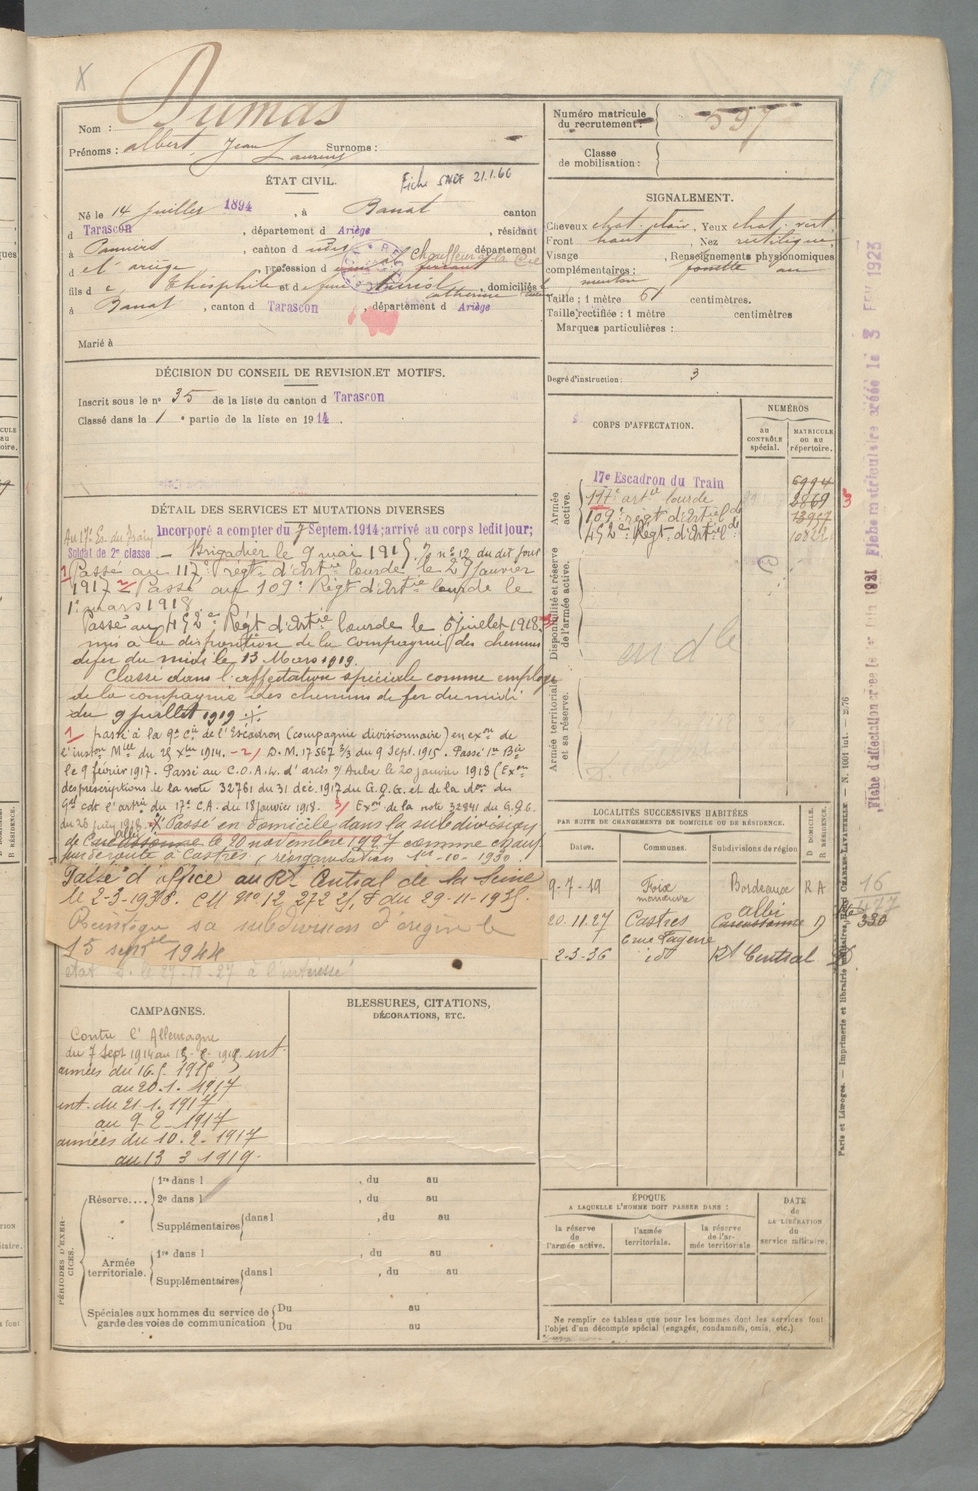 Nom : Dumas
Prénoms : albert Jean Laurens Surnoms :
Numéro matricule du recrutement : 597
Classe de mobilisation :
ÉTAT CIVIL.
Fiche SNCF 21.1.60
Né le 14 Juillet 1894, à Banat canton
d Tarascon, département d Ariège, résidant
à Pamiers, canton d dudit, département
d el ariège, profession d Chauffeur à la Cie
fils d e Théophile et d e feue Catherine, domiciliés
à Banat, canton d Tarascon, département d Ariège
Marié à
SIGNALEMENT.
Cheveux chat. clair, Yeux chat. vert
Front haut, Nez rectiligne
Visage , Renseignements physionomiques
complémentaires : fossette au
menton
Taille : 1 mètre 61 centimètres.
Taille rectifiée : 1 mètre centimètres
Marques particulières :
Degré d'instruction : 3
DÉCISION DU CONSEIL DE REVISION ET MOTIFS.
Inscrit sous le n° 35 de la liste du canton d Tarascon
Classé dans la 1e partie de la liste en 1914.
CORPS D'AFFECTATION.
NUMÉROS
au CONTRÔLE spécial.
MATRICULE OU AU répertoire.
Armée active.
17e Escadron du Train 6994
117e artie lourde 2869
109e régt d'Artiel d 13907
452e Régt d'Artiel d
Disponibilité et réserve de l'armée active.
Armée territoriale et sa réserve.
DÉTAIL DES SERVICES ET MUTATIONS DIVERSES
Au 17e Es. du Train Incorporé à compter du 7 Septem. 1914; arrivé au corps ledit jour;
Soldat de 2e classe — Brigadier le 9 mai 1915. n° 12 du dit jour
1/ Passé au 117e régt d'Artie lourde le 27 Janvier
1917 2/ Passé au 109e Régt d'Artie lourde le
1er mars 1918
Passé au 452e Régt d'Artie lourde le 6 Juillet 1918. 3/
mis à la disposition de la Compagnie des chemins
de fer du midi le 13 Mars 1919.
Classé dans l'affectation spéciale comme employé
de la compagnie des chemins de fer du midi
du 9 Juillet 1919
1/ passé à la 9e Cie de l'Escadron (compagnie divisionnaire) en exon de
l'inston Mlle du 28 Xbre 1914. — 2/ D.M. 17567 3/3 du 9 Sept. 1915. Passé 1re Bie
le 9 février 1917. Passé au C.O.A.L. d'arcis s/ Aube le 20 janvier 1918 (Exon
des prescriptions de la note 32761 du 31 déc. 1917 du G.Q.G. et de la du
Gal cdt l'artie du 17e C.A. du 18 Janvier 1918. 3/ Exon de la note 32841 du G.Q.G.
du 26 juin 1918. Passé en domicile dans la subdivision
de Carcassonne albi le 20 novembre 1927 comme chauf
feur de route à Castres, réorganisation 1er-10-1930
Passé d'office au Rt Central de la Seine
le 2-3-1936. CM n° 12 272 du 29-11-1935.
Réintègre sa subdivision d'origine le
15 septbre 1944
LOCALITÉS SUCCESSIVES HABITÉES
PAR SUITE DE CHANGEMENTS DE DOMICILE OU DE RÉSIDENCE.
Dates. Communes. Subdivisions de région D DOMICILE. R RÉSIDENCE.
9-7-19 Foix Bordeaux R A 16
manœuvre 477
20.11.27 Castres Carcassonne albi D 330
2-3-36 id Rt Central D
CAMPAGNES.
Contre l'Allemagne
du 7 Sept 1914 au 15-6-1915 int.
armées du 16.6.1915
au 20.1.1917
int. du 21.1.1917
au 9-2-1917
armées du 10.2.1917
au 13 3 1919.
BLESSURES, CITATIONS,
DÉCORATIONS, ETC.
PÉRIODES D'EXERCICES.
Réserve.... 1re dans l , du au
2e dans l , du au
Supplémentaires dans l , du au
Armée territoriale. 1re dans l , du au
Supplémentaires dans l , du au
Spéciales aux hommes du service de garde des voies de communication Du au
Du au
ÉPOQUE
A LAQUELLE L'HOMME DOIT PASSER DANS :
la réserve de l'armée active.
l'armée territoriale.
la réserve de l'armée territoriale
DATE de LA LIBÉRATION du service militaire.
Ne remplir ce tableau que pour les hommes dont les services font
l'objet d'un décompte spécial (engagés, condamnés, omis, etc.)
Fiche matriculaire créée le 3 FEV 1923
Paris et Limoges. — Imprimerie et librairie militaires Henri CHARLES-LAVAUZELLE